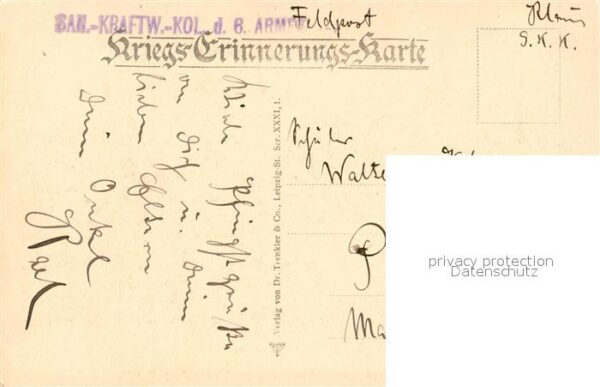 SAN.-KRAFTW.-KOL. d. 6. ARMEE
Feldpost
Klaus
S. K. K.
Kriegs-Erinnerungs-Karte
Viele Pfingstgrüße
an Dich u. Deine
lieben Eltern
Dein Onkel
Karl
Verlag von Dr. Trenkler & Co., Leipzig-St. Ser. XXXI, 1.
Schüler
Walte
P
Ma
privacy protection
Datenschutz